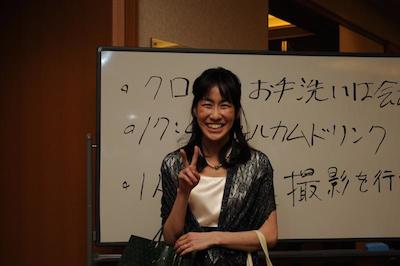 ・クロ お手洗いは会
・17: ルカムドリンク
・1 撮影を行